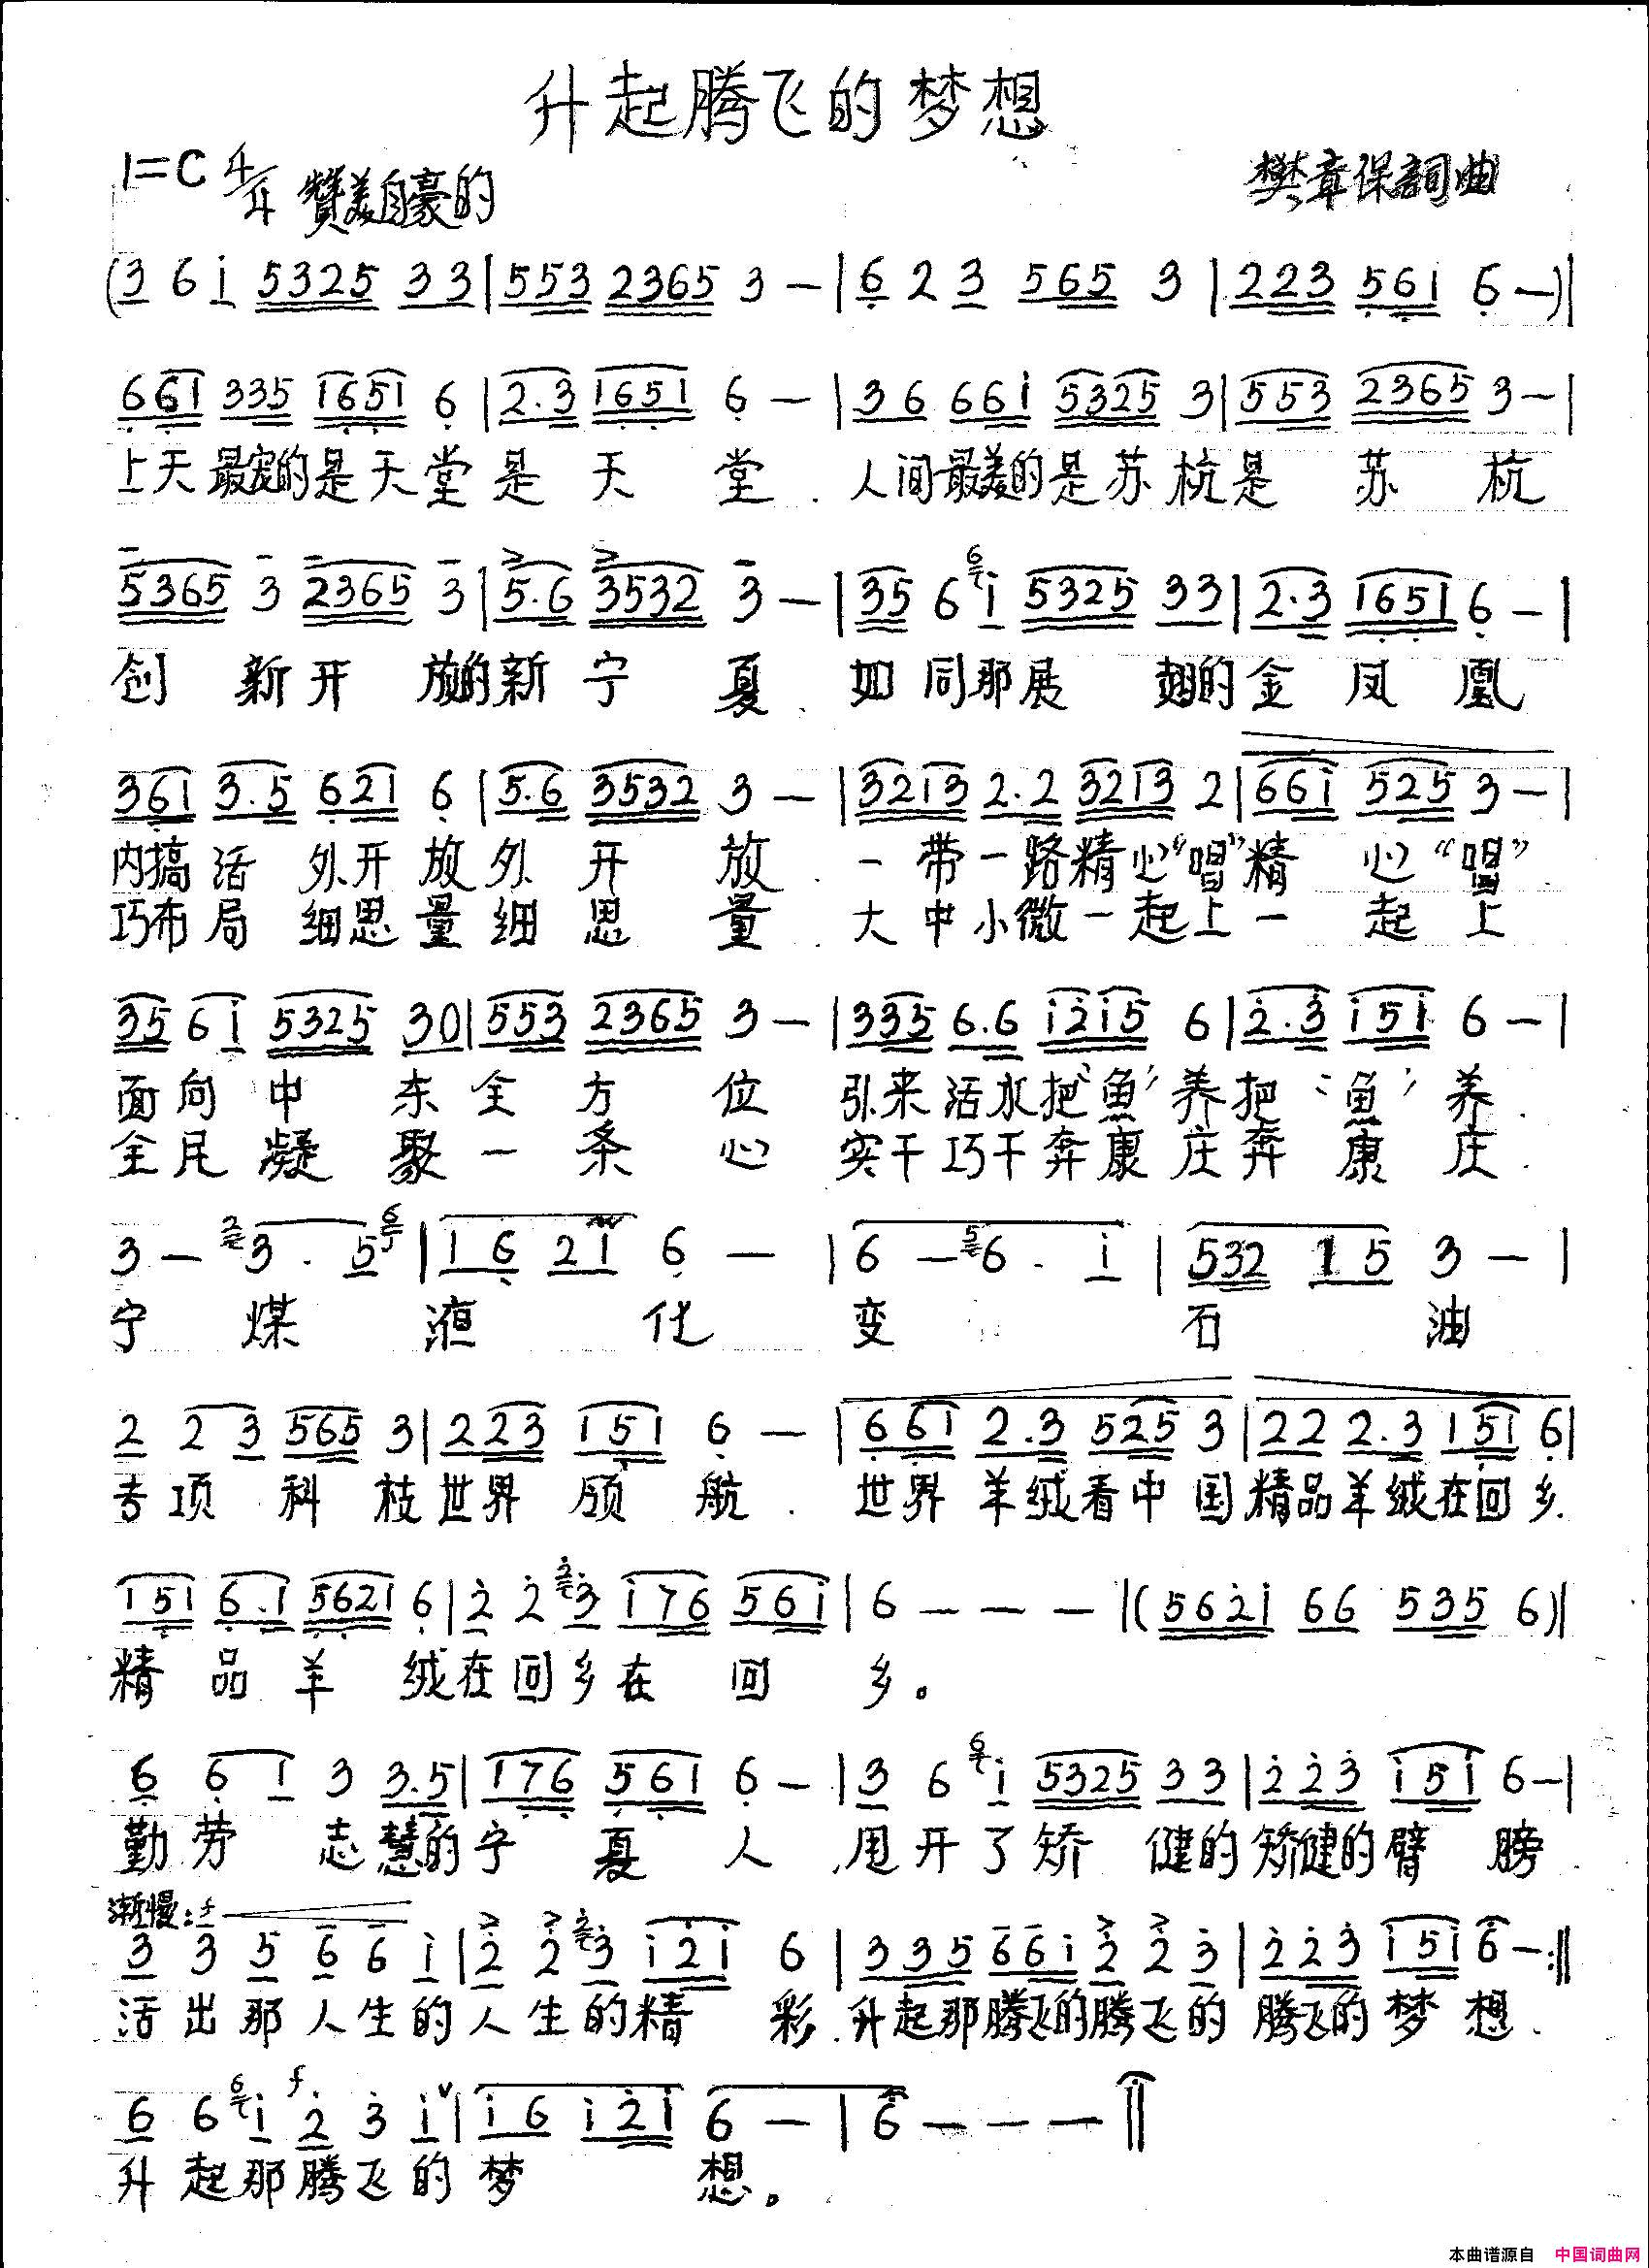 升起腾飞的梦想
1=C 4/4 赞美自豪的
樊章保詞曲
(3 6 i 5325 33|553 2365 3 —|6 2 3 565 3|223 561 6—)|
661 335 1651 6|2.3 1651 6 —|36 66i 5325 3|553 2365 3—|
上天最宠的是天堂是天堂.人间最美的是苏杭是苏杭
5365 3 2365 3|5.6 3532 3—|35 6 i 5325 33|2.3 1651 6—|
创新开放的新宁夏.如同那展翅的金凤凰
361 3.5 621 6|5.6 3532 3—|3213 2.2 3213 2|66i 525 3—|
内搞活外开放外开放.一带一路精心“唱”精心“唱”
巧布局细思量细思量.大中小微一起上一起上
35 6i 5325 30|553 2365 3—|335 6.6 i2i5 6|2.3 i5i 6—|
面向中东全方位引来活水把‘鱼’养把‘鱼’养.
全民凝聚一条心实干巧干奔康庄奔康庄.
3— 3.5|16 21 6—|6—6. i|532 15 3—|
宁煤液化变石油
2 23 565 3|223 151 6—|661 2.3 525 3|22 2.3 151 6|
专项科技世界领航.世界羊绒看中国精品羊绒在回乡.
151 6.1 5621 6|2 2 3 i76 56i|6———|(562i 66 535 6)|
精品羊绒在回乡在回乡。
6 61 3 3.5|176 561 6—|3 6 i 5325 33|223 i5i 6—|
勤劳志慧的宁夏人.甩开了矫健的矫健的臂膀.
渐慢:f
3 3 5 6 6 i|2 2 3 i2i 6|335 66i 2 2 3|223 i5i 6—:||
活出那人生的人生的精彩.升起那腾飞的腾飞的腾飞的梦想.
6 6 i 2 3 i|i6 i2i 6—|6———||
升起那腾飞的梦想。
本曲谱源自 中国词曲网